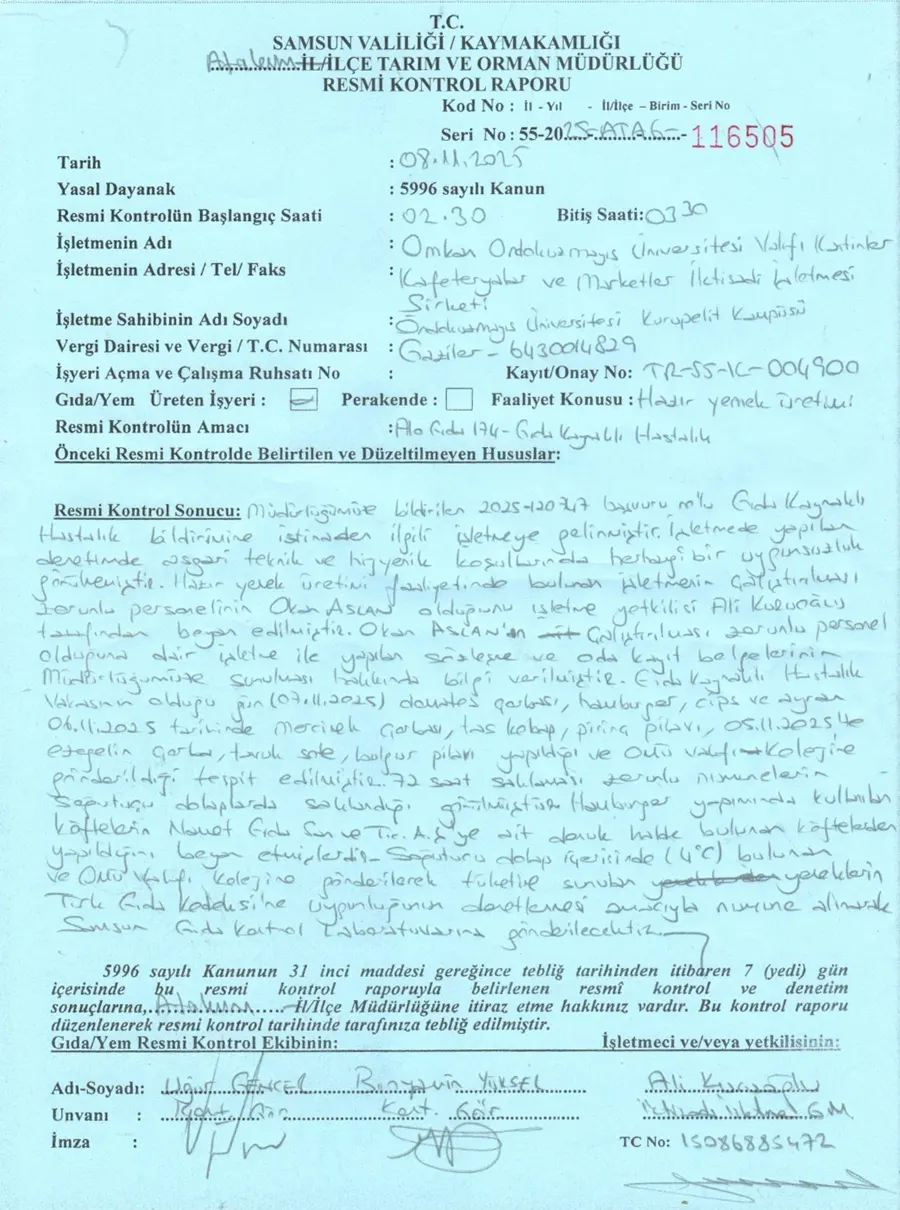 T.C.
SAMSUN VALİLİĞİ / KAYMAKAMLIĞI
Atakum İL/İLÇE TARIM VE ORMAN MÜDÜRLÜĞÜ
RESMİ KONTROL RAPORU
Kod No : İl - Yıl - İl/İlçe – Birim - Seri No
Seri No : 55-2025-ATAG-116505
Tarih : 08.11.2025
Yasal Dayanak : 5996 sayılı Kanun
Resmi Kontrolün Başlangıç Saati : 02.30 Bitiş Saati: 0330
İşletmenin Adı : Omkan Ondokuzmayıs Üniversitesi Vakfı Kantinler
İşletmenin Adresi / Tel/ Faks : Kafeteryalar ve Marketler İktisadi İşletmesi
Şirketi
İşletme Sahibinin Adı Soyadı : Ondokuzmayıs Üniversitesi Kurupelit Kampüsü
Vergi Dairesi ve Vergi / T.C. Numarası : Gaziler - 6430014829
İşyeri Açma ve Çalışma Ruhsatı No : Kayıt/Onay No: TR-55-K-004900
Gıda/Yem Üreten İşyeri : Perakende : Faaliyet Konusu : Hazır yemek üretimi
Resmi Kontrolün Amacı : Alo Gıda 174 - Gıda Kaynaklı Hastalık
Önceki Resmi Kontrolde Belirtilen ve Düzeltilmeyen Hususlar:
Resmi Kontrol Sonucu: Müdürlüğümüze bildirilen başvuru no'lu Gıda Kaynaklı
Hastalık bildirimine istinaden ilgili işletmeye gelinmiştir. İşletmede yapılan
denetimde asgari teknik ve hijyenik koşullarında herhangi bir uygunsuzluk
görülmemiştir. Hazır yemek üretimi faaliyetinde bulunan işletmenin çalıştırılması
zorunlu personelinin Okan ASLAN olduğunu işletme yetkilisi Ali
tarafından beyan edilmiştir. Okan ASLAN'ın çalıştırılması zorunlu personel
olduğuna dair işletme ile yapılan sözleşme ve oda kayıt belgelerinin
Müdürlüğümüze sunulması hakkında bilgi verilmiştir. Gıda Kaynaklı Hastalık
Vakasının olduğu gün (07.11.2025) domates çorbası, hamburger, cips ve ayran
06.11.2025 tarihinde Mercimek çorbası, tas kebap, pirinç pilavı, 05.11.2025'te
ezogelin çorba, tavuk sote, bulgur pilavı yapıldığı ve OMÜ vakfı Kolejine
gönderildiği tespit edilmiştir. 72 saat saklaması zorunlu numunelerin
Soğutucu dolaplarda saklandığı görülmüştür. Hamburger yapımında kullanılan
köftelerin Namet Gıda San ve Tic. A.Ş'ye ait donuk halde bulunan köftelerden
yapıldığını beyan etmişlerdir. Soğutucu dolap içerisinde (4°C) bulunan
ve OMÜ Vakfı Kolejine gönderilerek tüketime sunulan yemeklerin
Türk Gıda Kodeksi'ne uygunluğunun denetlemesi amacıyla numune alınarak
Samsun Gıda Kontrol Laboratuvarına gönderilecektir.
5996 sayılı Kanunun 31 inci maddesi gereğince tebliğ tarihinden itibaren 7 (yedi) gün
içerisinde bu resmi kontrol raporuyla belirlenen resmî kontrol ve denetim
sonuçlarına, Atakum İl/İlçe Müdürlüğüne itiraz etme hakkınız vardır. Bu kontrol raporu
düzenlenerek resmi kontrol tarihinde tarafınıza tebliğ edilmiştir.
Gıda/Yem Resmi Kontrol Ekibinin: İşletmeci ve/veya yetkilisinin:
Adı-Soyadı: Uğur GENCEL Bünyamin YÜKSEL Ali
Unvanı : Kont. Gör Kont. Gör
İmza : TC No: 15086885472